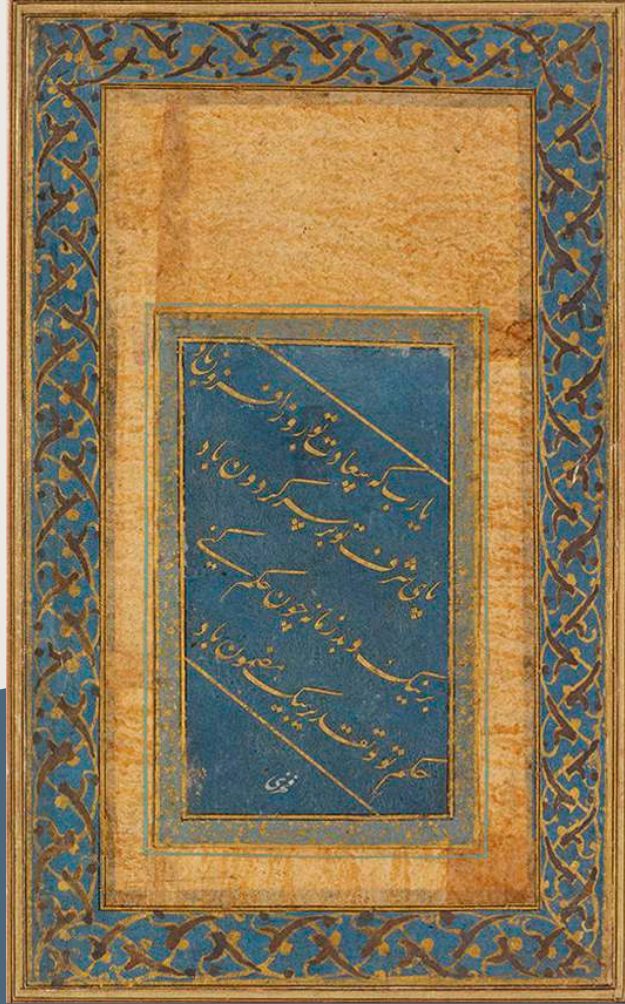 یا رب که سعادت تو روز افزون باد
پای شرف تو بر سر گردون باد
بر نیک و بد زمانه چون حکم کنی
حکم تو و تقدیر بیک مضمون باد